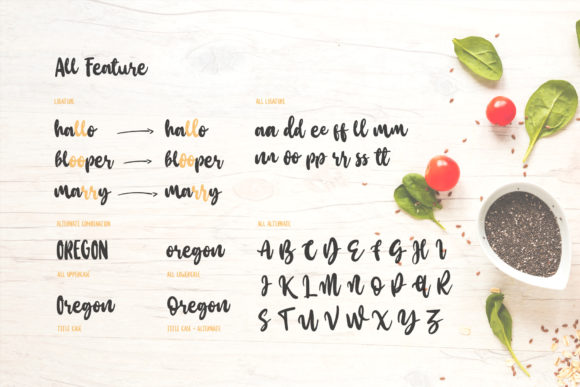 All Feature
LIGATURE
hallo hallo
blooper blooper
marry marry
ALL LIGATURE
aa dd ee ff ll mm
nn oo pp rr ss tt
ALTERNATE COMBINATION
OREGON oregon
ALL UPPERCASE ALL LOWERCASE
Oregon Oregon
TITLE CASE TITLE CASE + ALTERNATE
ALL ALTERNATE
A B C D E F G H I
J K L M N O P Q R
S T U V W X Y Z